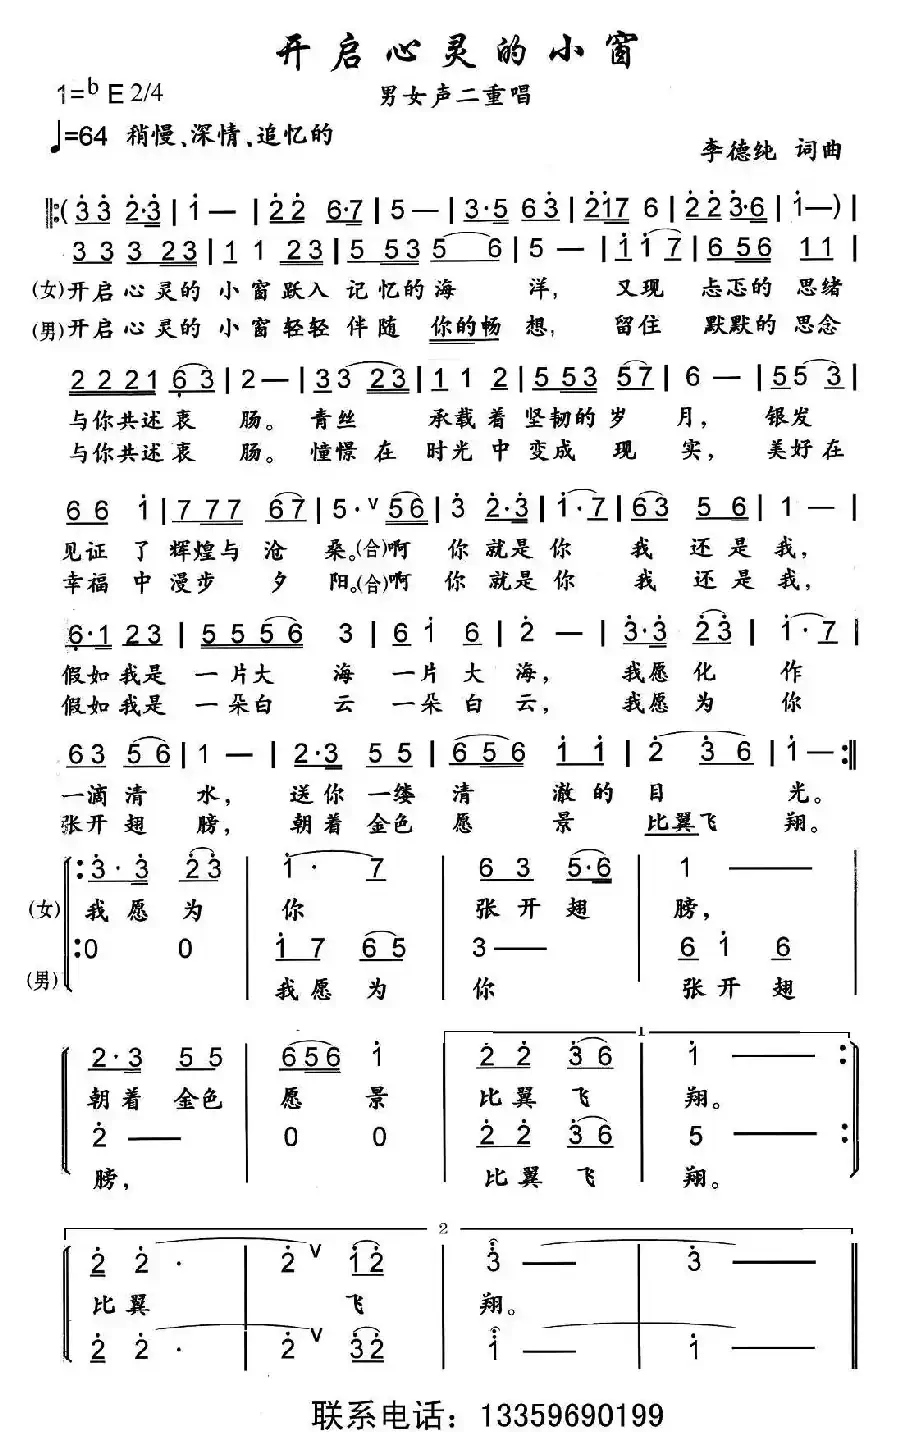 开启心灵的小窗
1=bE 2/4
男女声二重唱
♩=64 稍慢、深情、追忆的
李德纯 词曲
‖:(3̇3̇ 2̇·3̇ | 1̇ — | 2̇2̇ 6·7 | 5 — | 3·5 63 | 2̇1̇7 6 | 2̇2̇3̇·6 | 1̇—) |
333 23 | 1 1 23 | 5 53 5 6 | 5 — | 1̇ 1̇ 7 | 6 56 11 |
(女)开启心灵的 小窗跃入 记忆的海 洋, 又现 忐忑的 思绪
(男)开启心灵的 小窗轻轻 伴随 你的畅 想, 留住 默默的 思念
2221 6̣3 | 2— | 33 23 | 1 1 2 | 5 53 57 | 6 — | 55 3 |
与你共述衷 肠。 青丝 承载着 坚韧的岁 月, 银发
与你共述衷 肠。 憧憬在 时光中 变成 现 实, 美好在
66 1̇ | 7 77 67 | 5·∨56 | 3̇ 2̇·3̇ | 1̇·7 | 63 56 | 1 — |
见证 了 辉煌与 沧 桑。(合)啊 你 就是你 我 还是我,
幸福 中 漫步 夕 阳。(合)啊 你 就是你 我 还是我,
6̣·1 23 | 5556 3 | 6 1̇ 6 | 2̇ — | 3̇·3̇ 2̇3̇ | 1̇·7 |
假如我是 一片大 海 一片大海, 我愿化 作
假如我是 一朵白 云 一朵白云, 我愿为 你
63 56 | 1 — | 2·3 55 | 656 1̇ 1̇ | 2̇ 3̇6 | 1̇—:‖
一滴清 水, 送你一缕 清 澈的 目 光。
张开翅 膀, 朝着金色 愿 景 比翼飞 翔。
‖:3̇·3̇ 2̇3̇ | 1̇· 7 | 63 5·6 | 1 — |
(女) 我愿为 你 张开翅 膀,
:0 0 | 1̇7 65 | 3— | 6 1̇ 6
(男) 我愿为 你 张开翅
1
2·3 55 | 656 1̇ | 2̇ 2̇ 3̇6 | 1̇ — :
朝着金色 愿 景 比翼飞 翔。
2̇ — | 0 0 | 2̇ 2̇ 3̇6 | 5 — :‖
膀, 比翼飞 翔。
2
2̇ 2̇ · | 2̇ ∨ 1̇2̇ | 3̇ — | 3̇ — ‖
比翼 飞 翔。
2̇ 2̇ · | 2̇ ∨ 3̇2̇ | 1̇ — | 1̇ — ‖
联系电话：13359690199